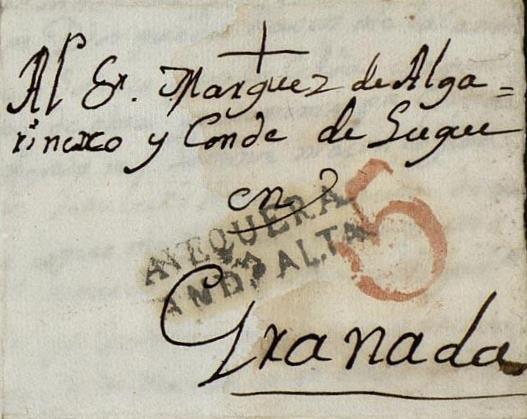 Al Sr. Marquez de Alga=
rinexo y Conde de Luque
en
ANTEQUERA
ANDA ALTA
5
Granada